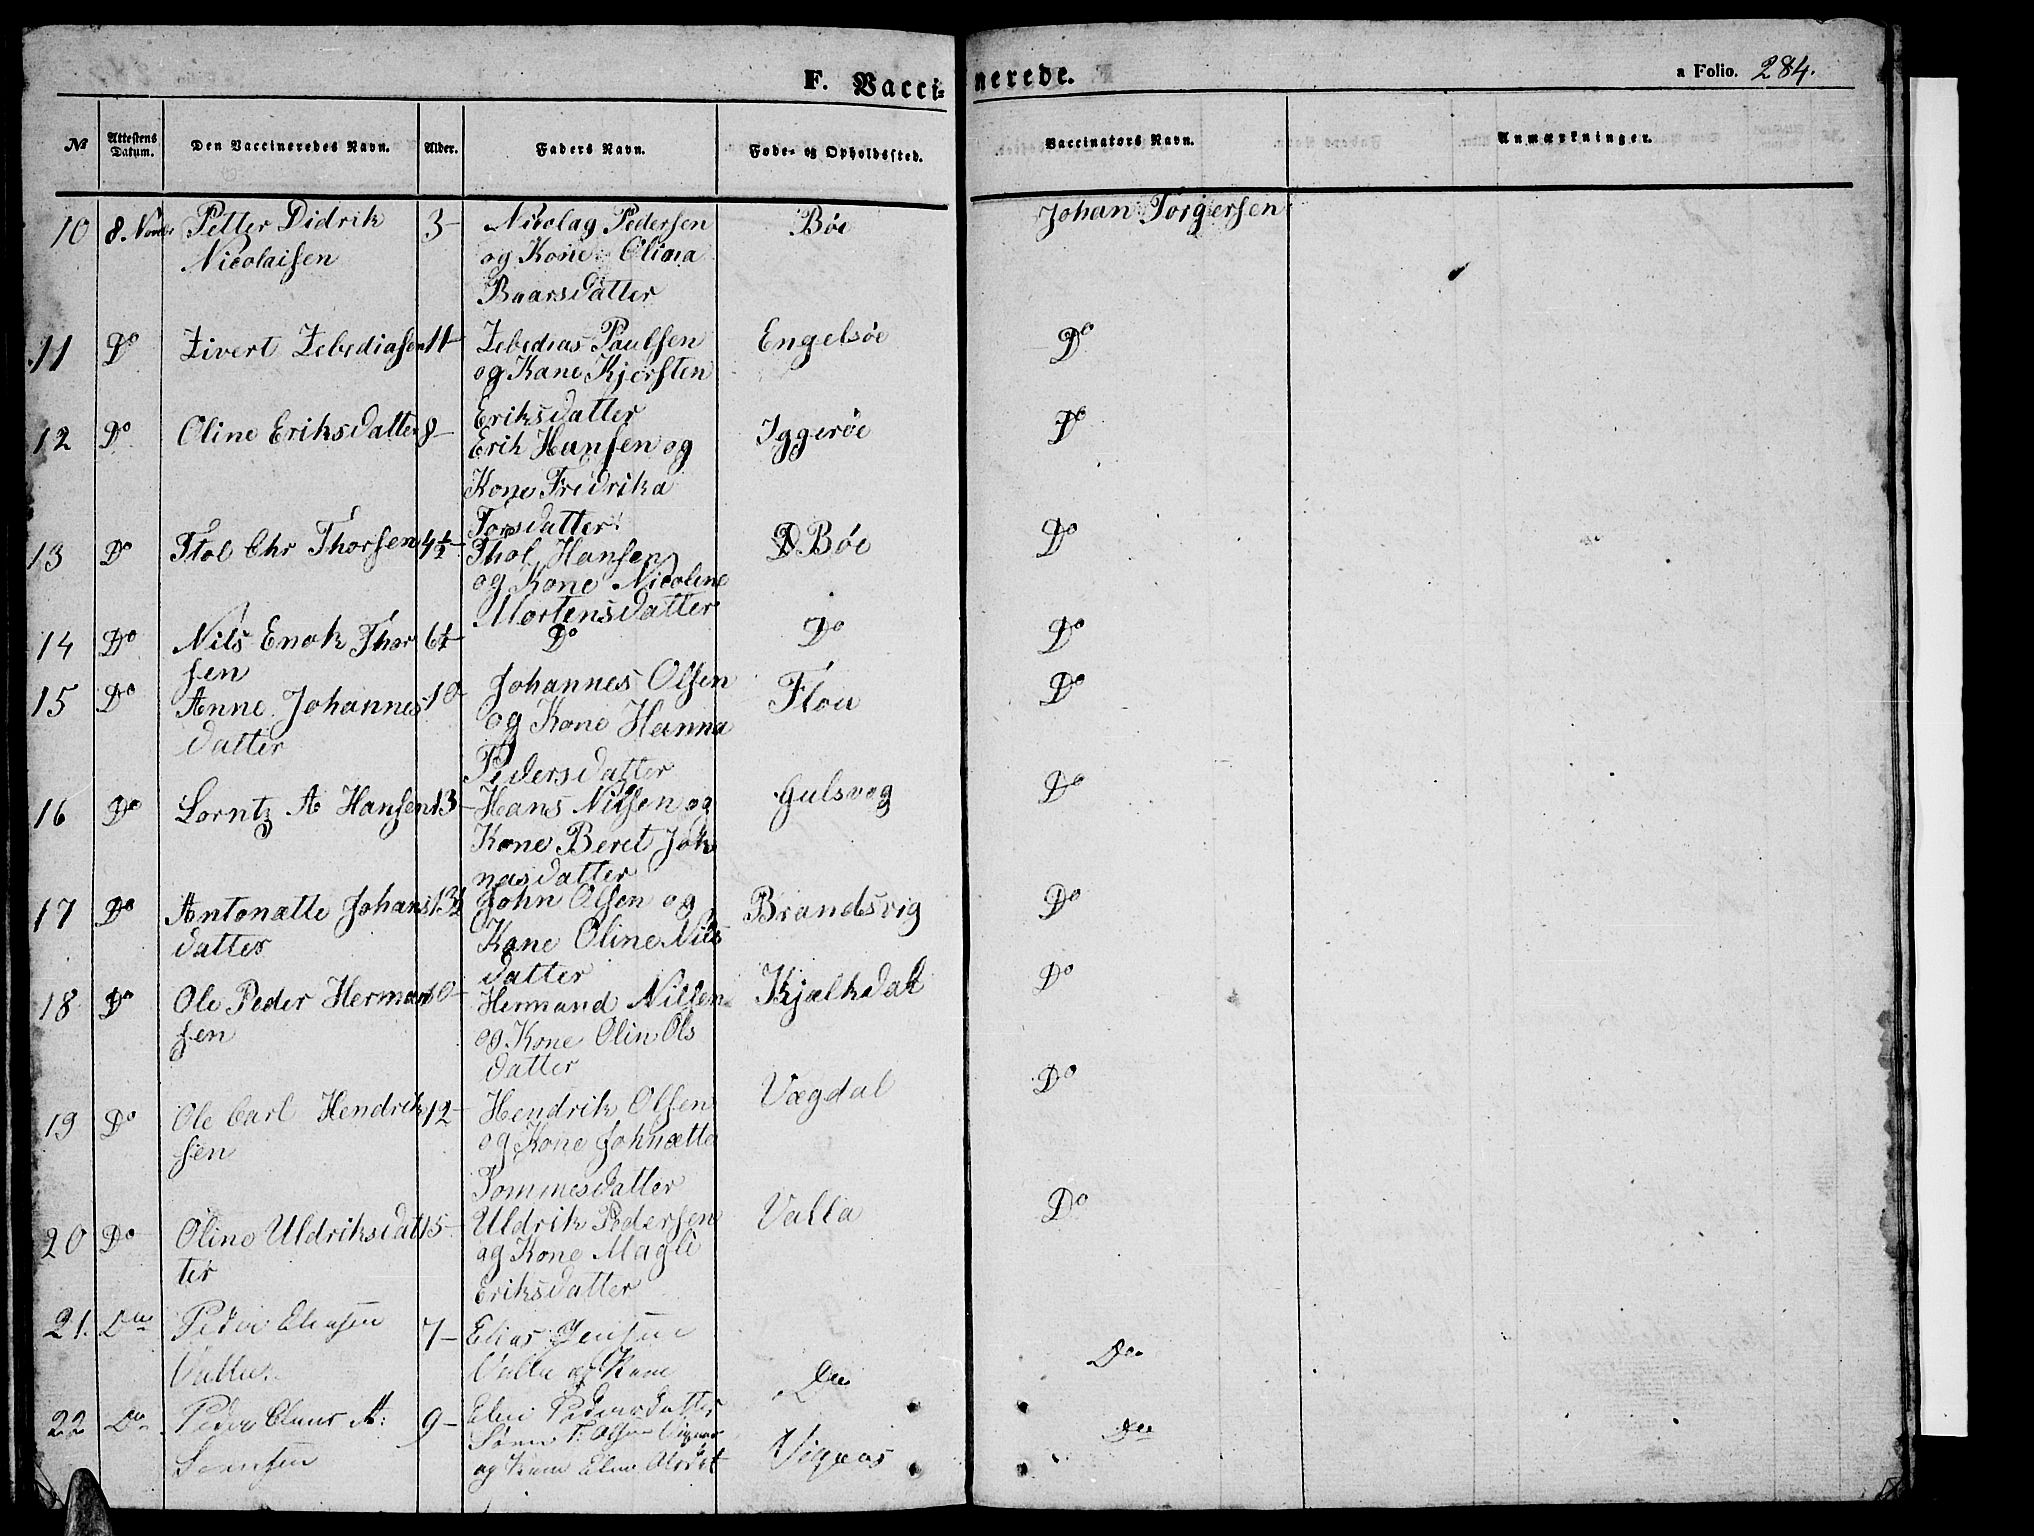 F. Vaccinerede.
a Folio. 284.
№ Attestens Datum. Den Vaccineredes Navn. Alder. Faders Navn. Føde- og Opholdssted. Vaccinators Navn. Anmærkninger.
10 8. Petter Didrik 3- Nicolag Pedersen Bøe Johan Torgersen
Nicolaisen og Kone Olina
Baarsdatter
11 Do Zivert Zebediasen 11- Zebedias Paulsen Engelsøe Do
og Kane Kjersten
Eriksdatter
12 Do Oline Eriksdatter 8- Erik Hansen og Iggerøe Do
Kone Fredrika
Torsdatter
13 Do Chr Thorsen 4½- Thol Hansen Bøe Do
og Kone Nicoline
Mortensdatter
14 Do Nils Enok Thor Do Do Do
sen
15 Do Anne Johannes 10- Johannes Olsen Flou Do
datter og Kone Hanna
Pedersdatter
16 Do Lorntz A Hansen 13- Hans Nilsen og Gulsvog Do
Kone Beret Joh
nasdatter
17 Do Antonætte Johans 13½ John Olsen og Brandsvig Do
datter Kane Oline Nils
datter
18 Do Ole Peder Herman 10- Hermand Nilsen Kjælkdal Do
sen og Kone Olin Ols
datter
19 Do Ole Carl Hendrik 12- Hendrik Olsen Vægdal Do
sen og Kone Johnætte
Tommesdatter
20 Do Oline Uldriksdat 15- Uldrik Pedersen Valla Do
ter og Kone Magli
Eriksdatter
21. Do Peder Eliasen 7- Elias Jensen Do
Valle Valle og Kone Do
22 Do Peder Claus A: 9- Elen Pedersdatter Do
Sørensen Søren T. Olsen
og Kone Elen Vignes